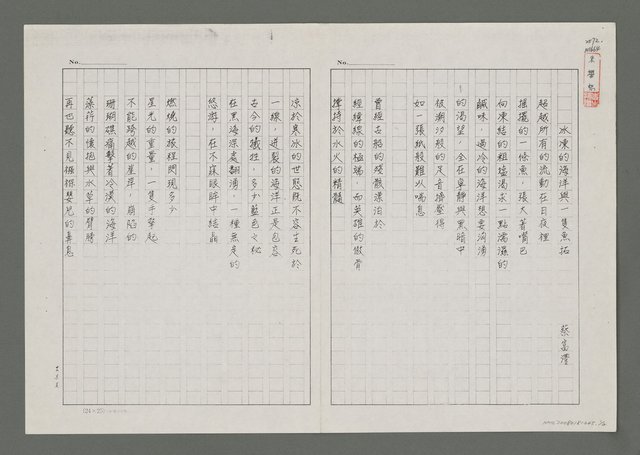 No.
冰凍的海洋與一隻魚拓
蔡富澧
超越所有的流動在日夜裡
搖擺的一條魚，張大著嘴巴
向凍結的粗鹽渴求一點濡濕的
鹹味，過冷的海洋想要洶湧
的渴望，全在寂靜與黑暗中
被潮汐般的足音擠壓得
如一張紙般難以喘息
曾經古船的殘骸漂泊於
經緯線的極端，而英雄的傲骨
撐持於水火的精髓
No.
凉於寒冰的世態既不容生死於
一線，迸裂的海洋正是包容
古今的犧牲，多少藍色之秘
在黑海深處翻湧，一種無是的
悠游，在不寐眼眸中結晶
燃燒的旅程閃現多少
星光的重量，一隻手擎起
不能跨越的崖岸，崩陷的
珊瑚礁痛擊著冷漠的海洋
藻荇的懷抱與水草的臂膀
再也聽不見裸裎嬰兒的鼻息
(24×25)